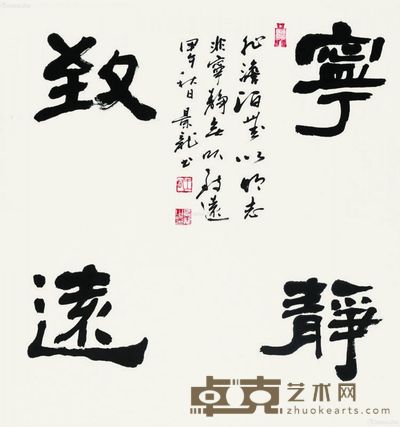 寧靜
非澹泊無以明志
非寧靜無以致遠
甲午秋日景龍書
致遠
卓克艺术网
zhuokearts.com